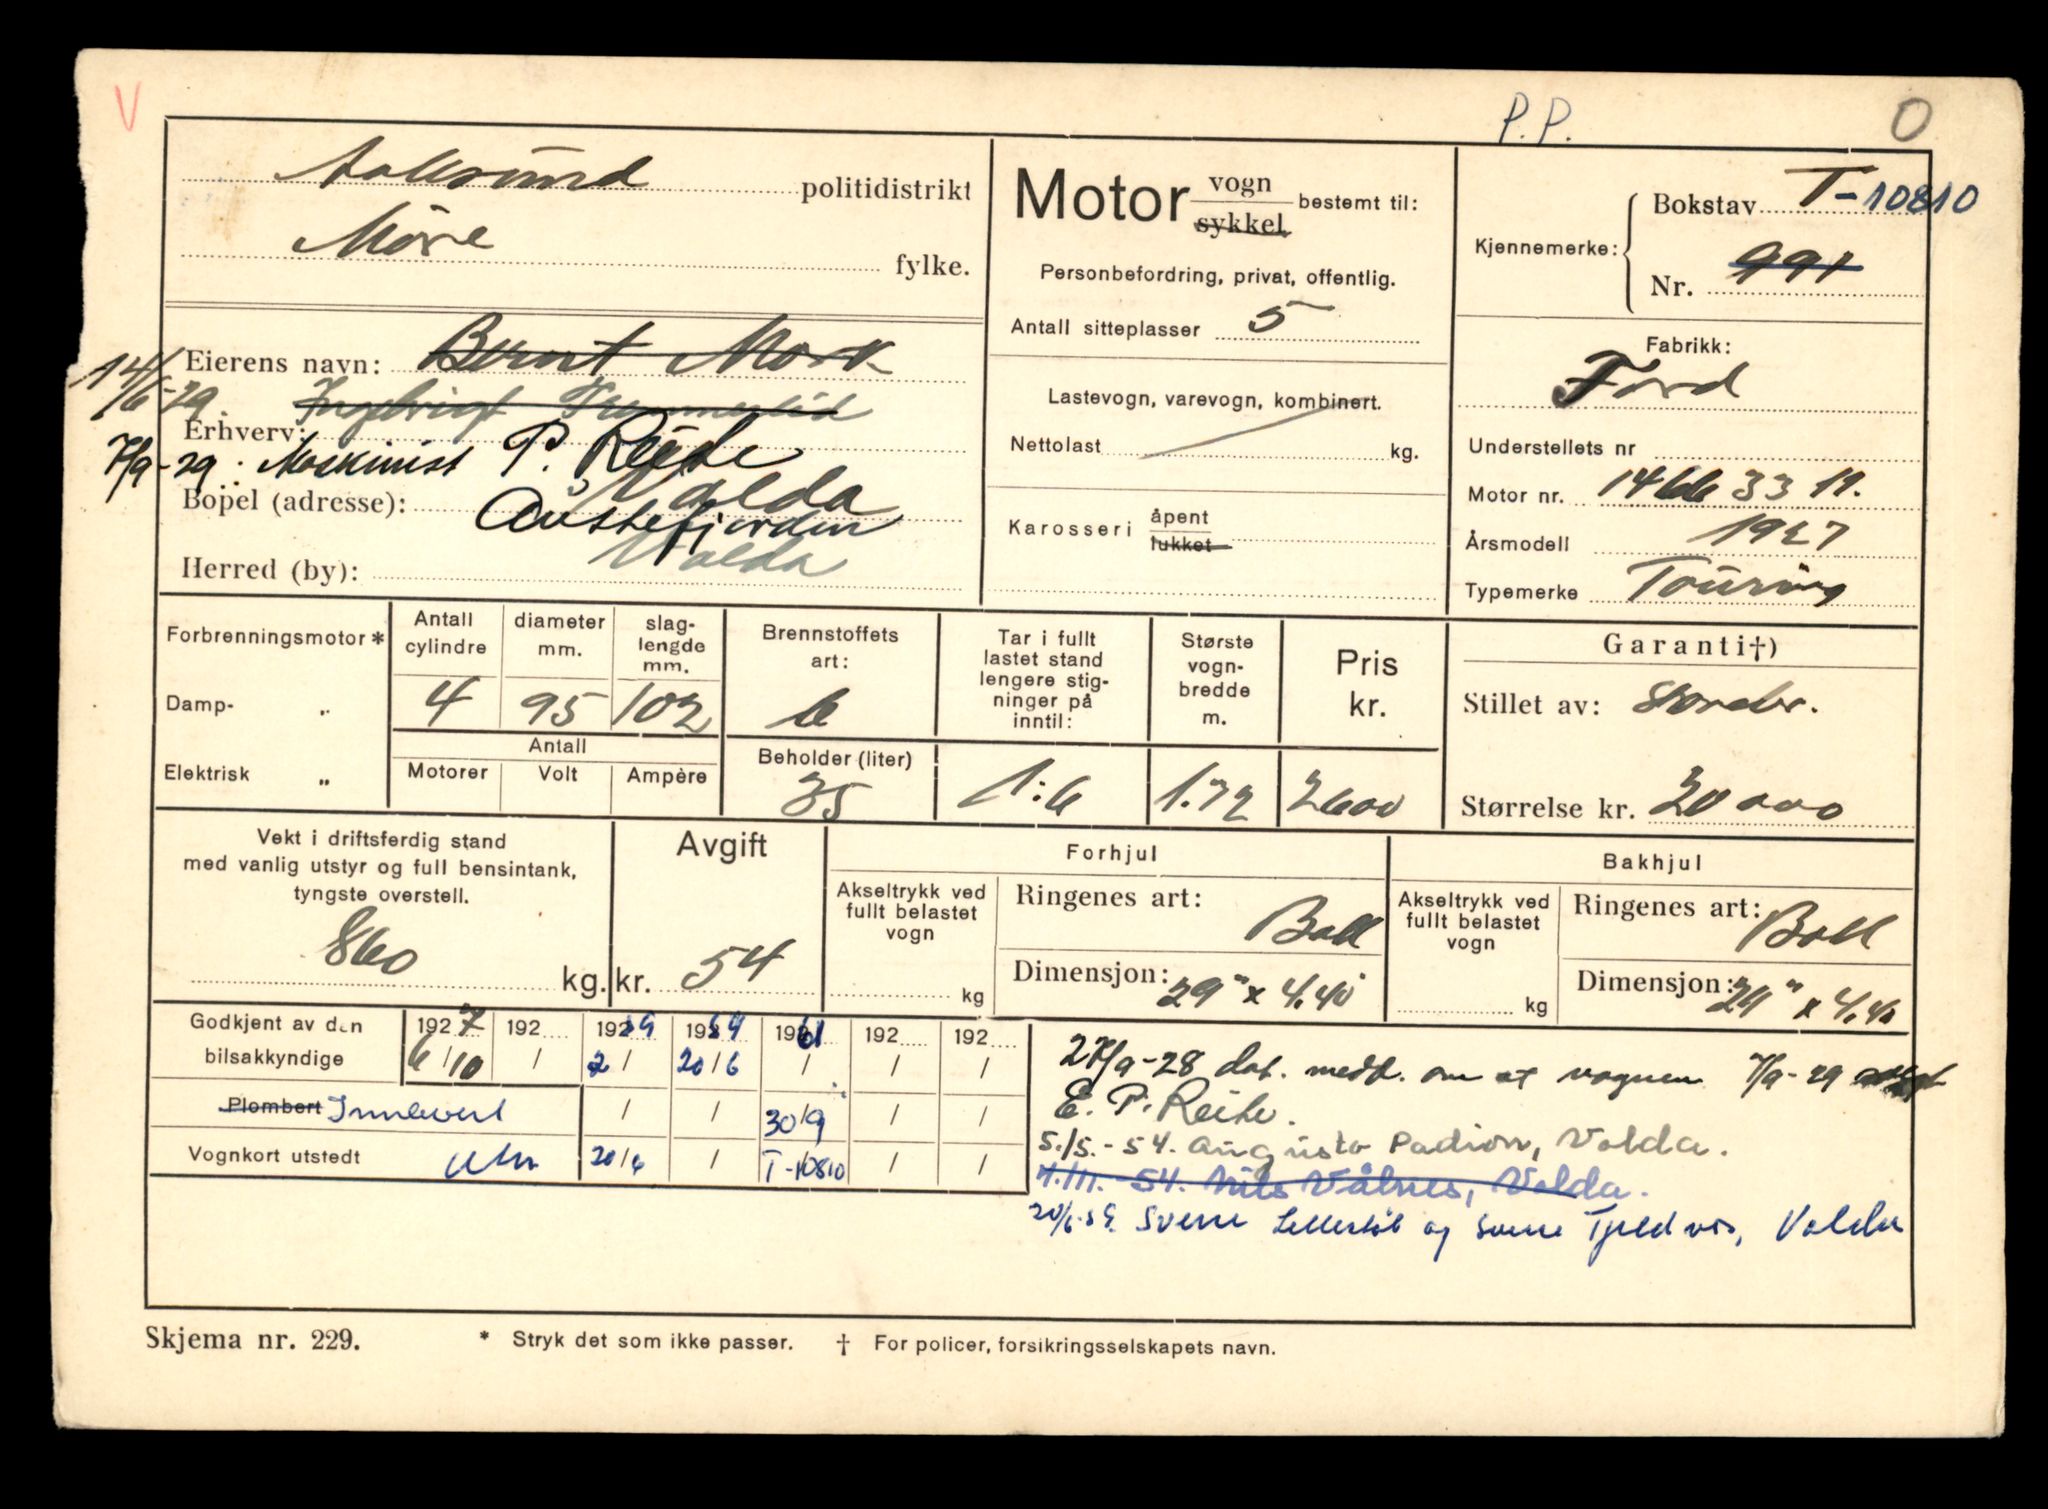 V
P.P.
O
Aalesund politidistrikt
Møre fylke.
Motor vogn sykkel bestemt til:
Personbefordring, privat, offentlig.
Antall sitteplasser 5
Lastevogn, varevogn, kombinert.
Nettolast kg.
Karosseri åpent lukket
Kjennemerke: Bokstav T-10810
Nr. 991
Fabrikk:
Ford
Understellets nr
Motor nr. 14663319.
Årsmodell 1927
Typemerke Touring
Eierens navn: Bernt Mork
14/6-29 Ingebrigt
Erhverv:
7/9-29: Maskinist P. Reite
Volda
Bopel (adresse): Austefjorden
Volda
Herred (by):
Forbrenningsmotor *
Damp- „
Elektrisk „
Antall cylindre 4
diameter mm. 95
slaglengde mm. 102
Antall
Motorer Volt Ampère
Brennstoffets art: b
Beholder (liter) 35
Tar i fullt lastet stand lengere stigninger på inntil: 1:6
Største vognbredde m. 1.72
Pris kr. 2600
Garanti†)
Stillet av: Storebr.
Størrelse kr. 20000
Vekt i driftsferdig stand
med vanlig utstyr og full bensintank,
tyngste overstell.
860 kg.
Avgift
kr. 54
Forhjul
Akseltrykk ved fullt belastet vogn kg
Ringenes art: Ball
Dimensjon: 29" x 4.40
Bakhjul
Akseltrykk ved fullt belastet vogn kg
Ringenes art: Ball
Dimensjon: 29" x 4.40
Godkjent av den bilsakkyndige
1927 192 1959 1954 1961 192 192
6/10 / 2/ 20/6 / / /
Plombert Innlevert / / 30/9 / /
Vognkort utstedt 20/6 / T-10810 / /
27/9-28 dat. medd. om at vognen 7/9-29
E. P. Reite.
5./5.-54. Augusto Padion, Volda.
54. Nils Vålnes, Volda.
20/6-59. Sverre og Sverre Tjeldvis, Volda
Skjema nr. 229.
* Stryk det som ikke passer. † For policer, forsikringsselskapets navn.